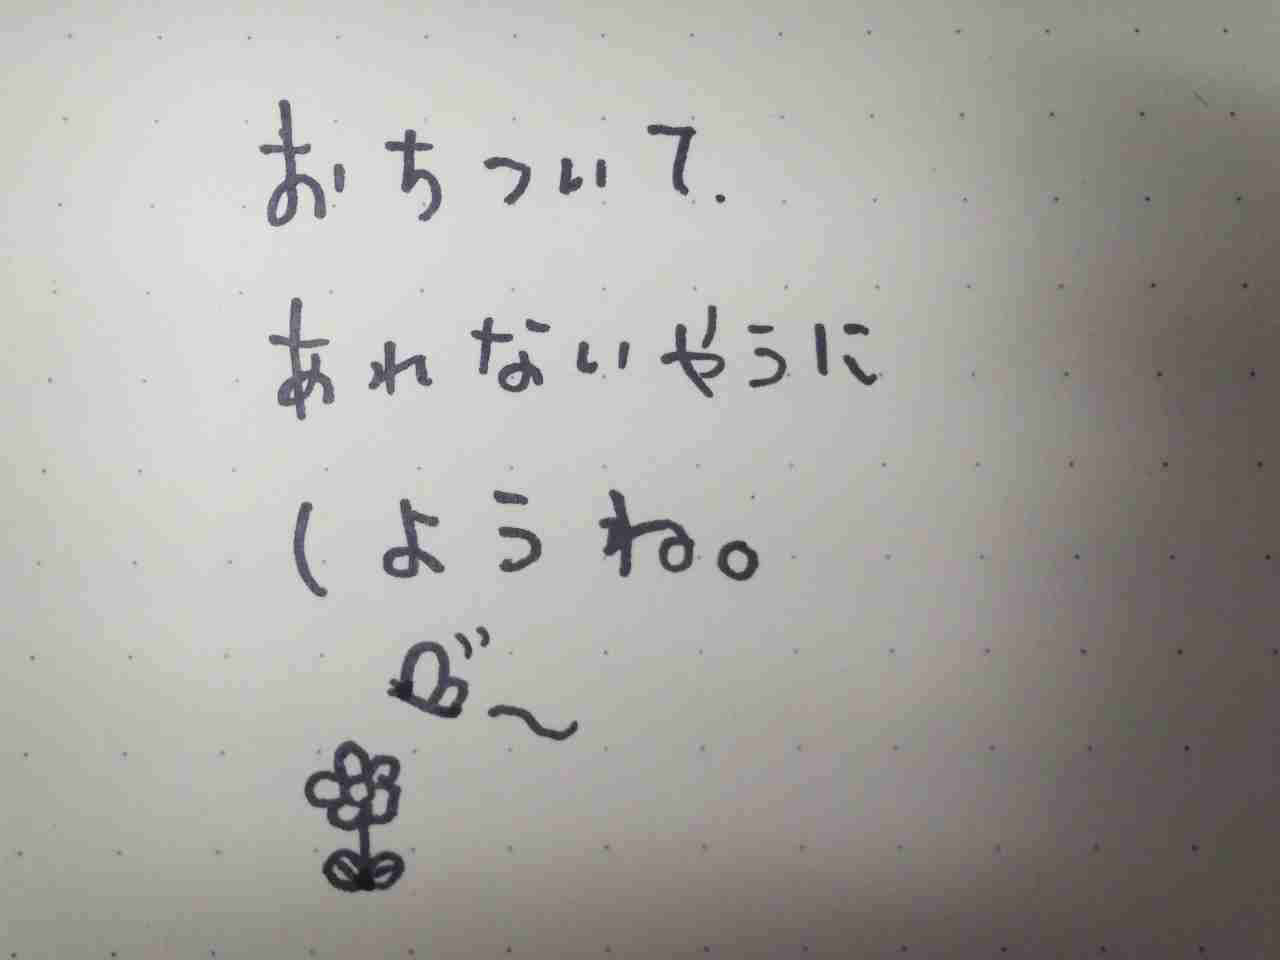 おちついて.
あれないやうに
しようね。